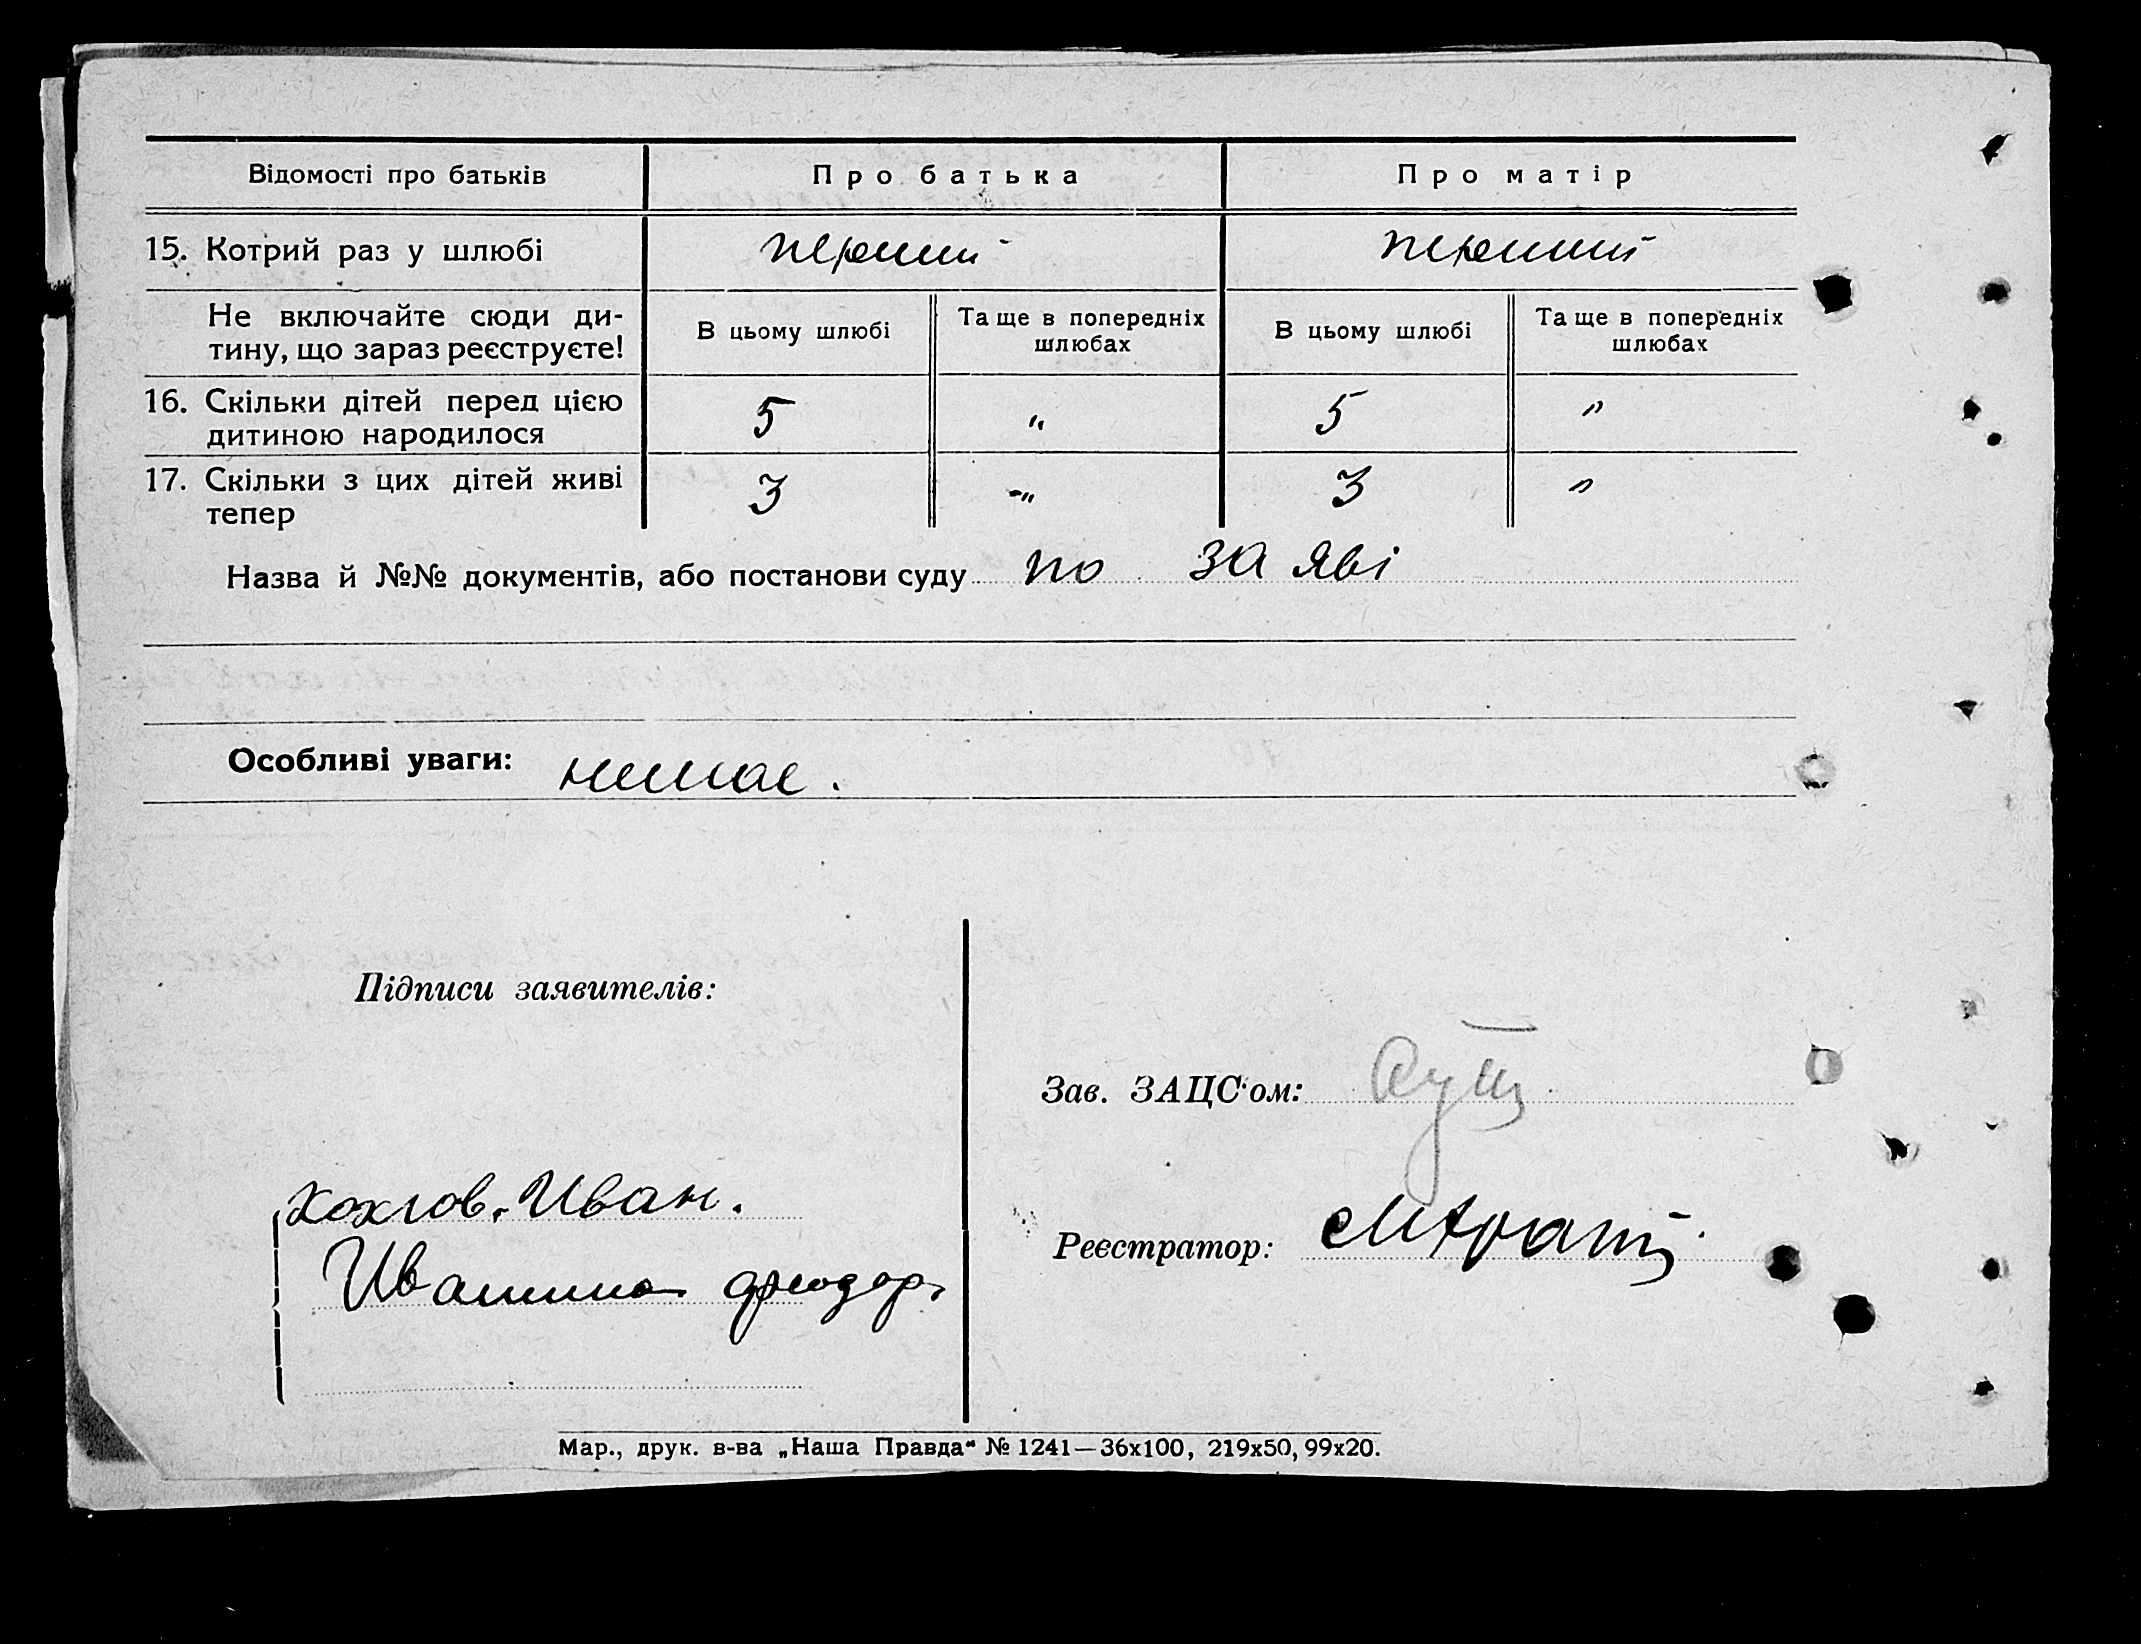 Відомості про батьків Про батька Про матір
15. Котрий раз у шлюбі перший перший
Не включайте сюди ди-
тину, що зараз реєструєте!
В цьому шлюбі Та ще в попередніх шлюбах В цьому шлюбі Та ще в попередніх шлюбах
16. Скільки дітей перед цією
дитиною народилося 5 " 5 "
17. Скільки з цих дітей живі
тепер 3 -" 3 "
Назва й №№ документів, або постанови суду по заяві
Особливі уваги: немае.
Підписи заявителів:
Зав. ЗАЦС'ом:
Хохлов. Иван.
Реєстратор:
Мар., друк. в-ва „Наша Правда“ № 1241—36х100, 219х50, 99х20.